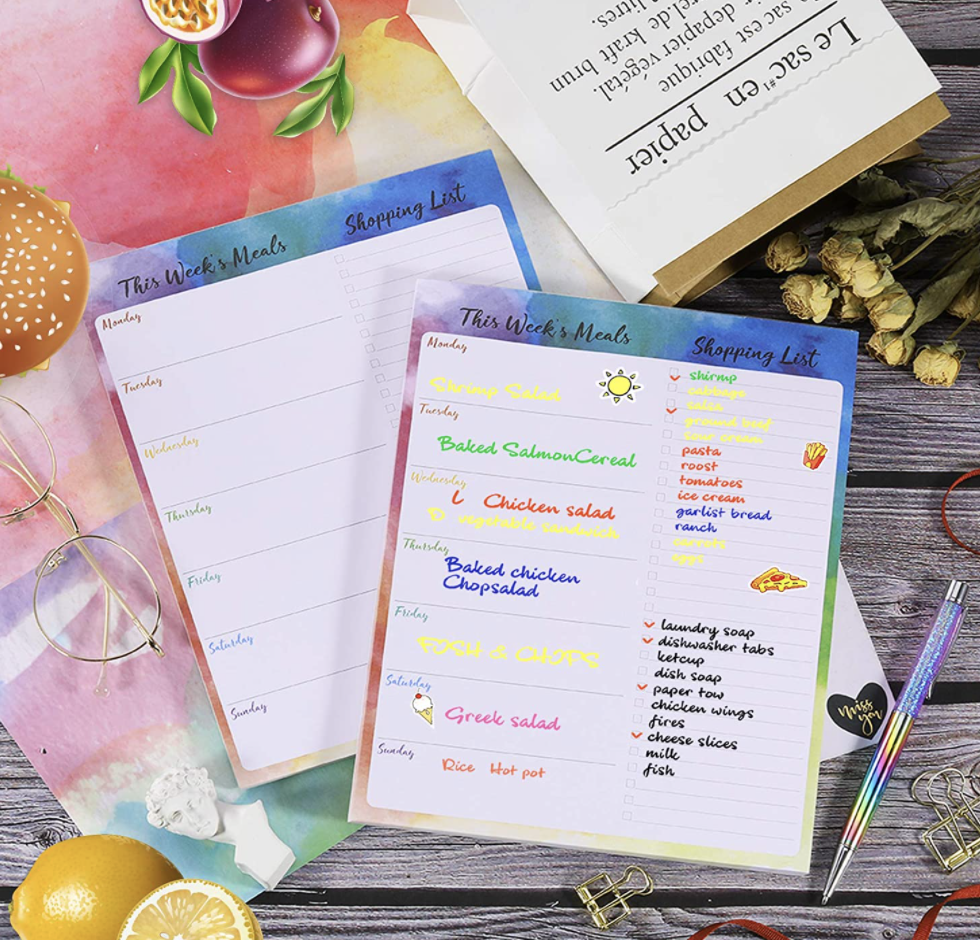 Le sac#1 en
papier
sac est fabrique
depapier végétal.
kraft brun
litres.
This Week's Meals
Shopping List
Monday
Tuesday
Wednesday
Thursday
Friday
Saturday
Sunday
This Week's Meals
Shopping List
Monday
Shrimp Salad
Tuesday
Baked SalmonCereal
Wednesday
L Chicken salad
D vegetable sandwich
Thursday
Baked chicken
Chopsalad
Friday
FISH & CHIPS
Saturday
Greek salad
Sunday
Rice Hot pot
shirmp
cabbage
salsa
ground beef
sour cream
pasta
roost
tomatoes
ice cream
garlist bread
ranch
carrots
eggs
laundry soap
dishwasher tabs
ketcup
dish soap
paper tow
chicken wings
fires
cheese slices
milk
fish
miss
you